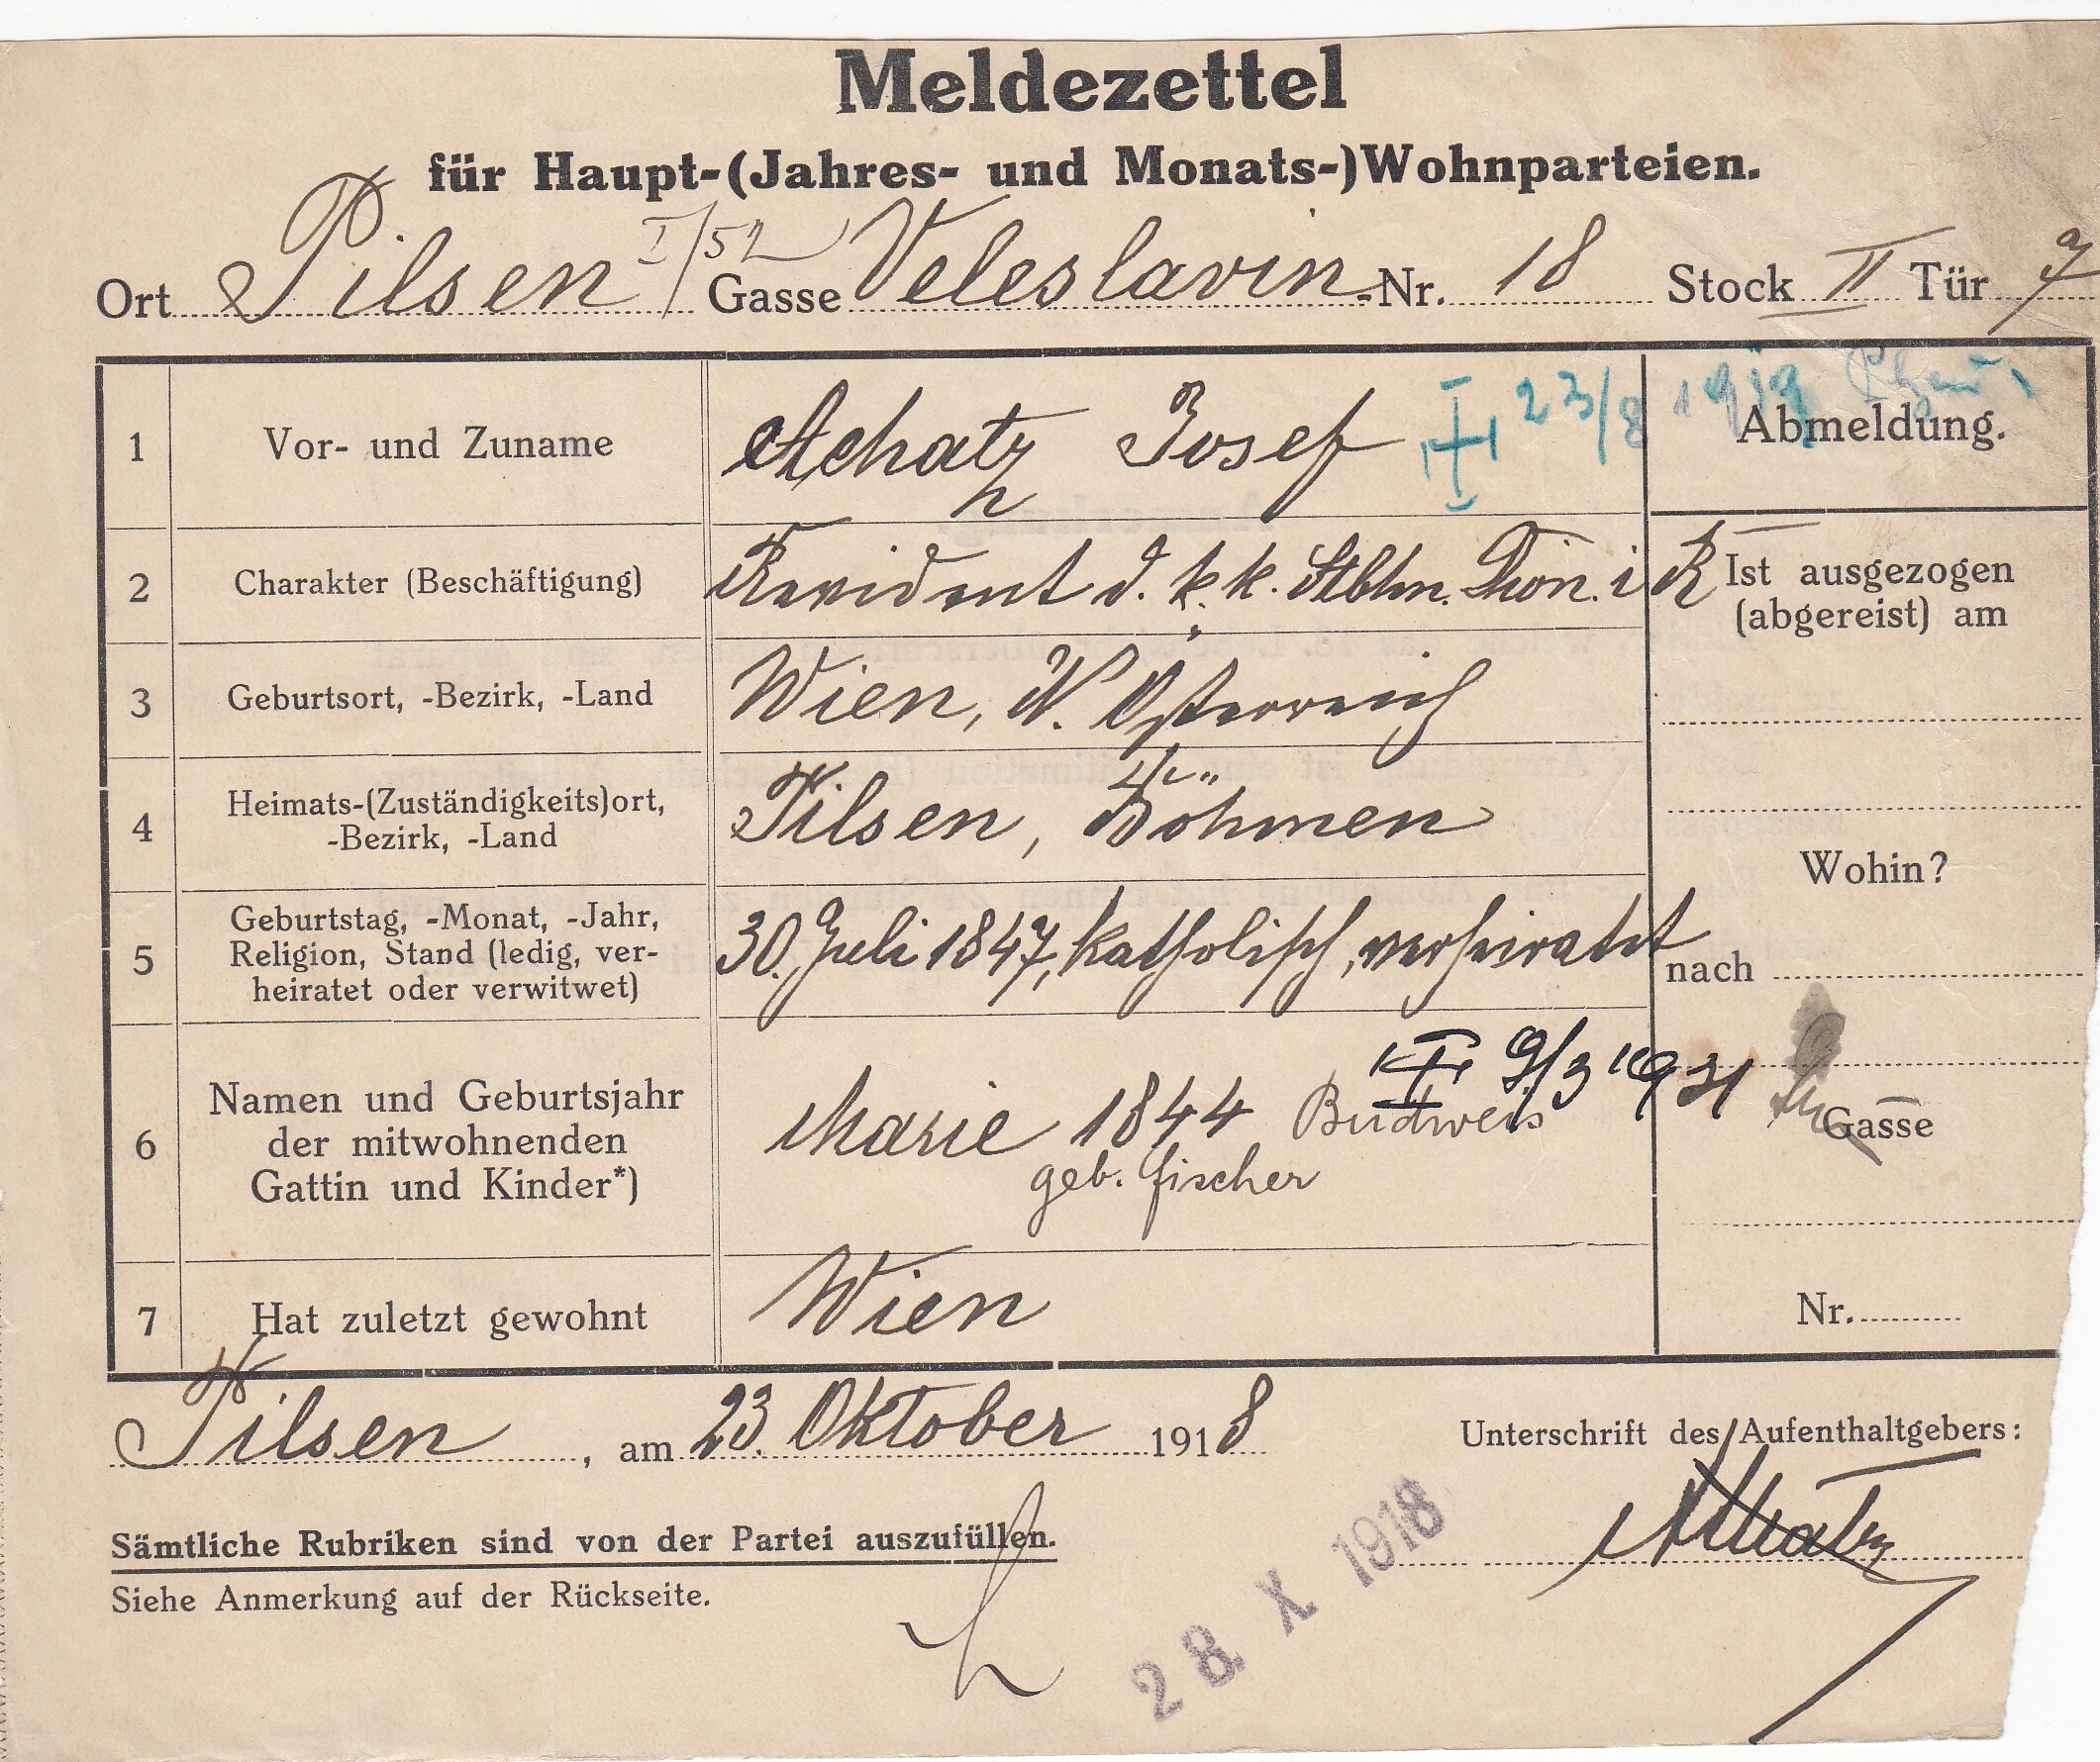 Meldezettel
für Haupt-(Jahres- und Monats-)Wohnparteien.
Ort Pilsen I/52 Gasse Veleslavin -Nr. 18 Stock II Tür 7
1 Vor- und Zuname Achatz Josef 23/8 Abmeldung.
2 Charakter (Beschäftigung) Revident d. k. k. Stbhn. Dion. i R
Ist ausgezogen
(abgereist) am
3 Geburtsort, -Bezirk, -Land Wien, N. Österreich
4 Heimats-(Zuständigkeits)ort,
-Bezirk, -Land
Pilsen, Böhmen
Wohin?
5 Geburtstag, -Monat, -Jahr,
Religion, Stand (ledig, ver-
heiratet oder verwitwet)
30. Juli 1847, katholisch, verheiratet
nach
6 Namen und Geburtsjahr
der mitwohnenden
Gattin und Kinder*)
9/3 1931
Marie 1844 Budweis
geb. Fischer
Gasse
7 Hat zuletzt gewohnt Wien
Nr.
Pilsen, am 23. Oktober 1918
Unterschrift des Aufenthaltgebers:
Achatz
Sämtliche Rubriken sind von der Partei auszufüllen.
Siehe Anmerkung auf der Rückseite.
28. X 1918